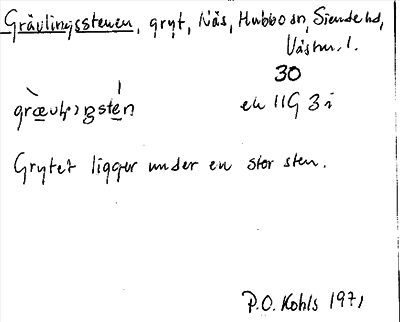 Grävlingsstenen, gryt, Näs, Hubbo sn, Siende hd,
Västm. l.
30
ek 11G 3i
Grytet ligger under en stor sten.
P.O. Kohls 1971